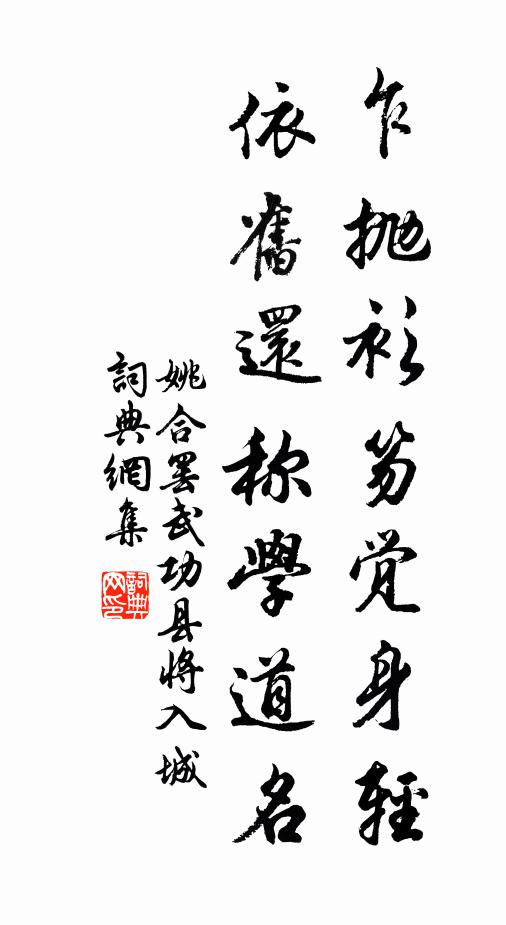 乍抛衫笏觉身輕
依舊還称學道名
姚合罢武功县将入城
詞典網集
詞典网印